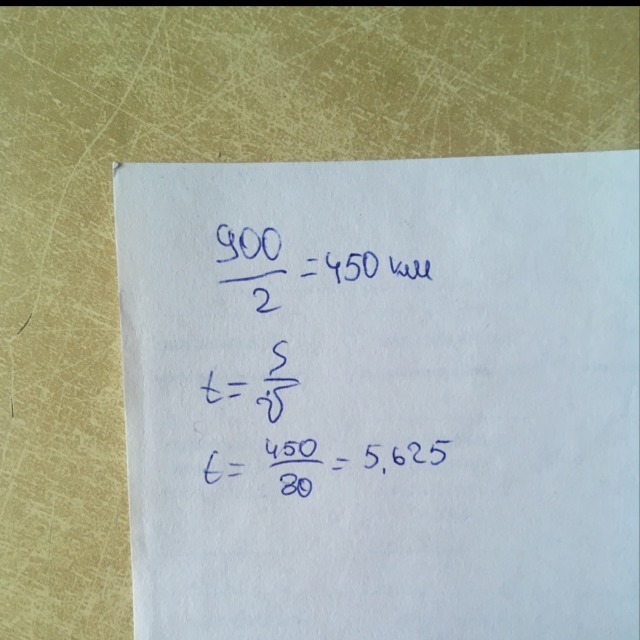 900/2 = 450 км
t = S/v
t = 450/80 = 5,625